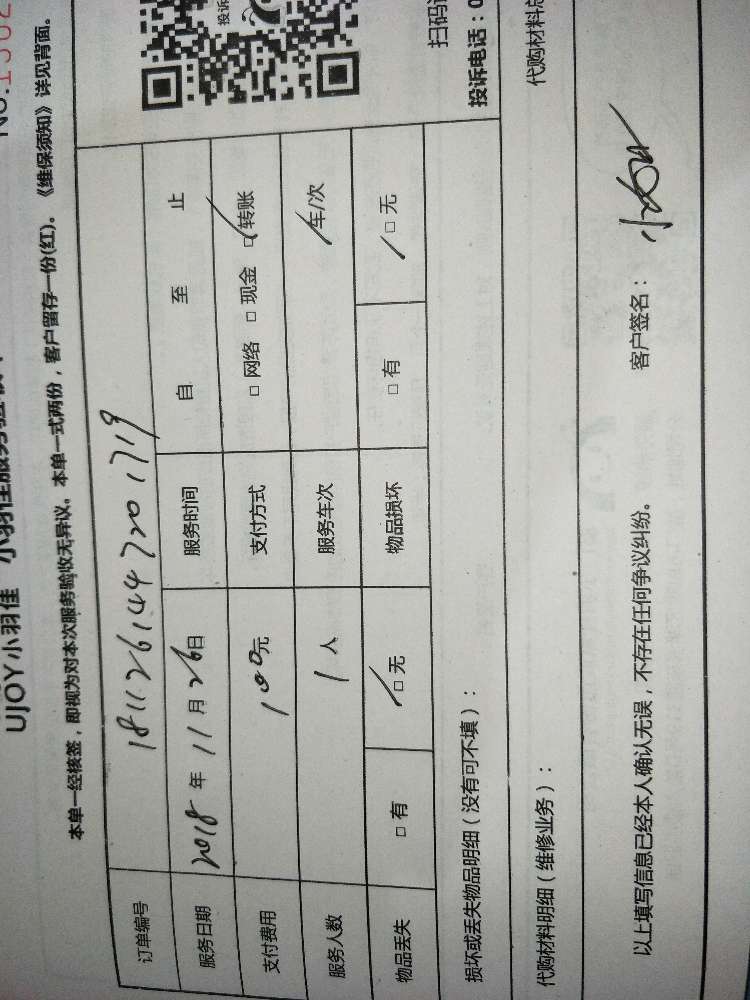 UJOY小羽佳 小羽佳服务验收单
本单一经核签，即视为对本次服务验收无异议。本单一式两份，客户留存一份(红)。《维保须知》详见背面。
订单编号 1811261447201719
服务日期 2018年11月26日 服务时间 自 至 止
支付费用 100元 支付方式 □网络 □现金 □转账
服务人数 1人 服务车次 车/次
物品丢失 □有 □无 物品损坏 □有 □无
损坏或丢失物品明细（没有可不填）：
投诉电话：0
代购材料明细（维修业务）：
以上填写信息已经本人确认无误，不存在任何争议纠纷。 客户签名：